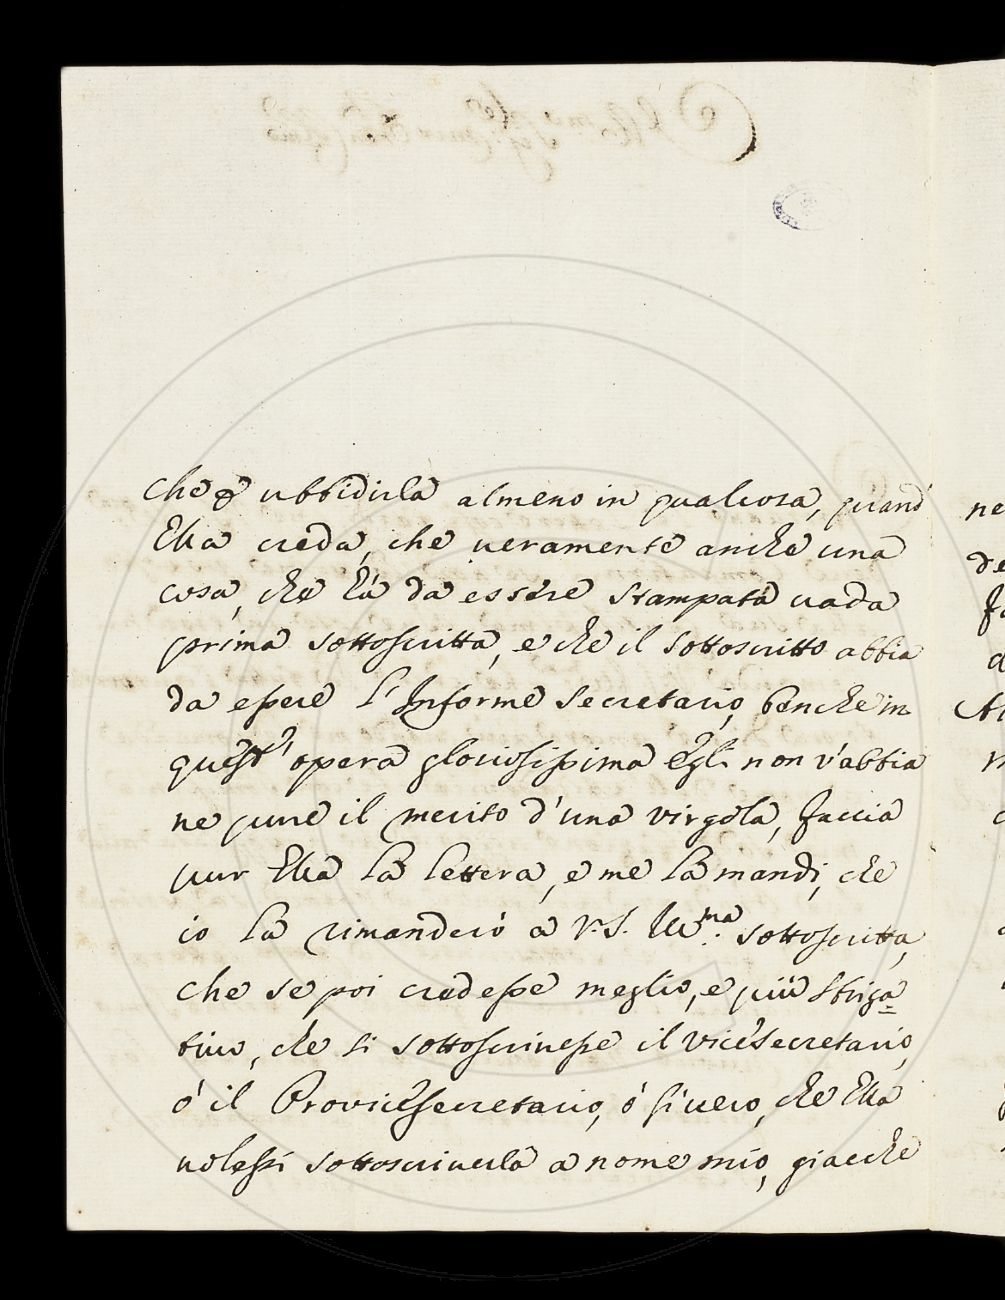 che p ubbidirla almeno in qualcosa, quand
Ella creda, che veramente anche una
cosa, che hà da essere stampata vada
prima sottoscritta, e che il sottoscritto abbia
da essere l'Informe Secretario, benche in
quest' opera gloriosissima Egli non v'abbia
ne pure il merito d'una virgola, faccia
pur Ella la lettera, e me la mandi, che
io la rimanderò a V.S. Ill.ma sottoscritta,
che se poi credesse meglio, e più sbriga=
tivo, che si sottoscrivesse il Vicesecretario,
ò il Provicesecretario, ò sivero, che Ella
volessi sottoscriverla a nome mio, giacche